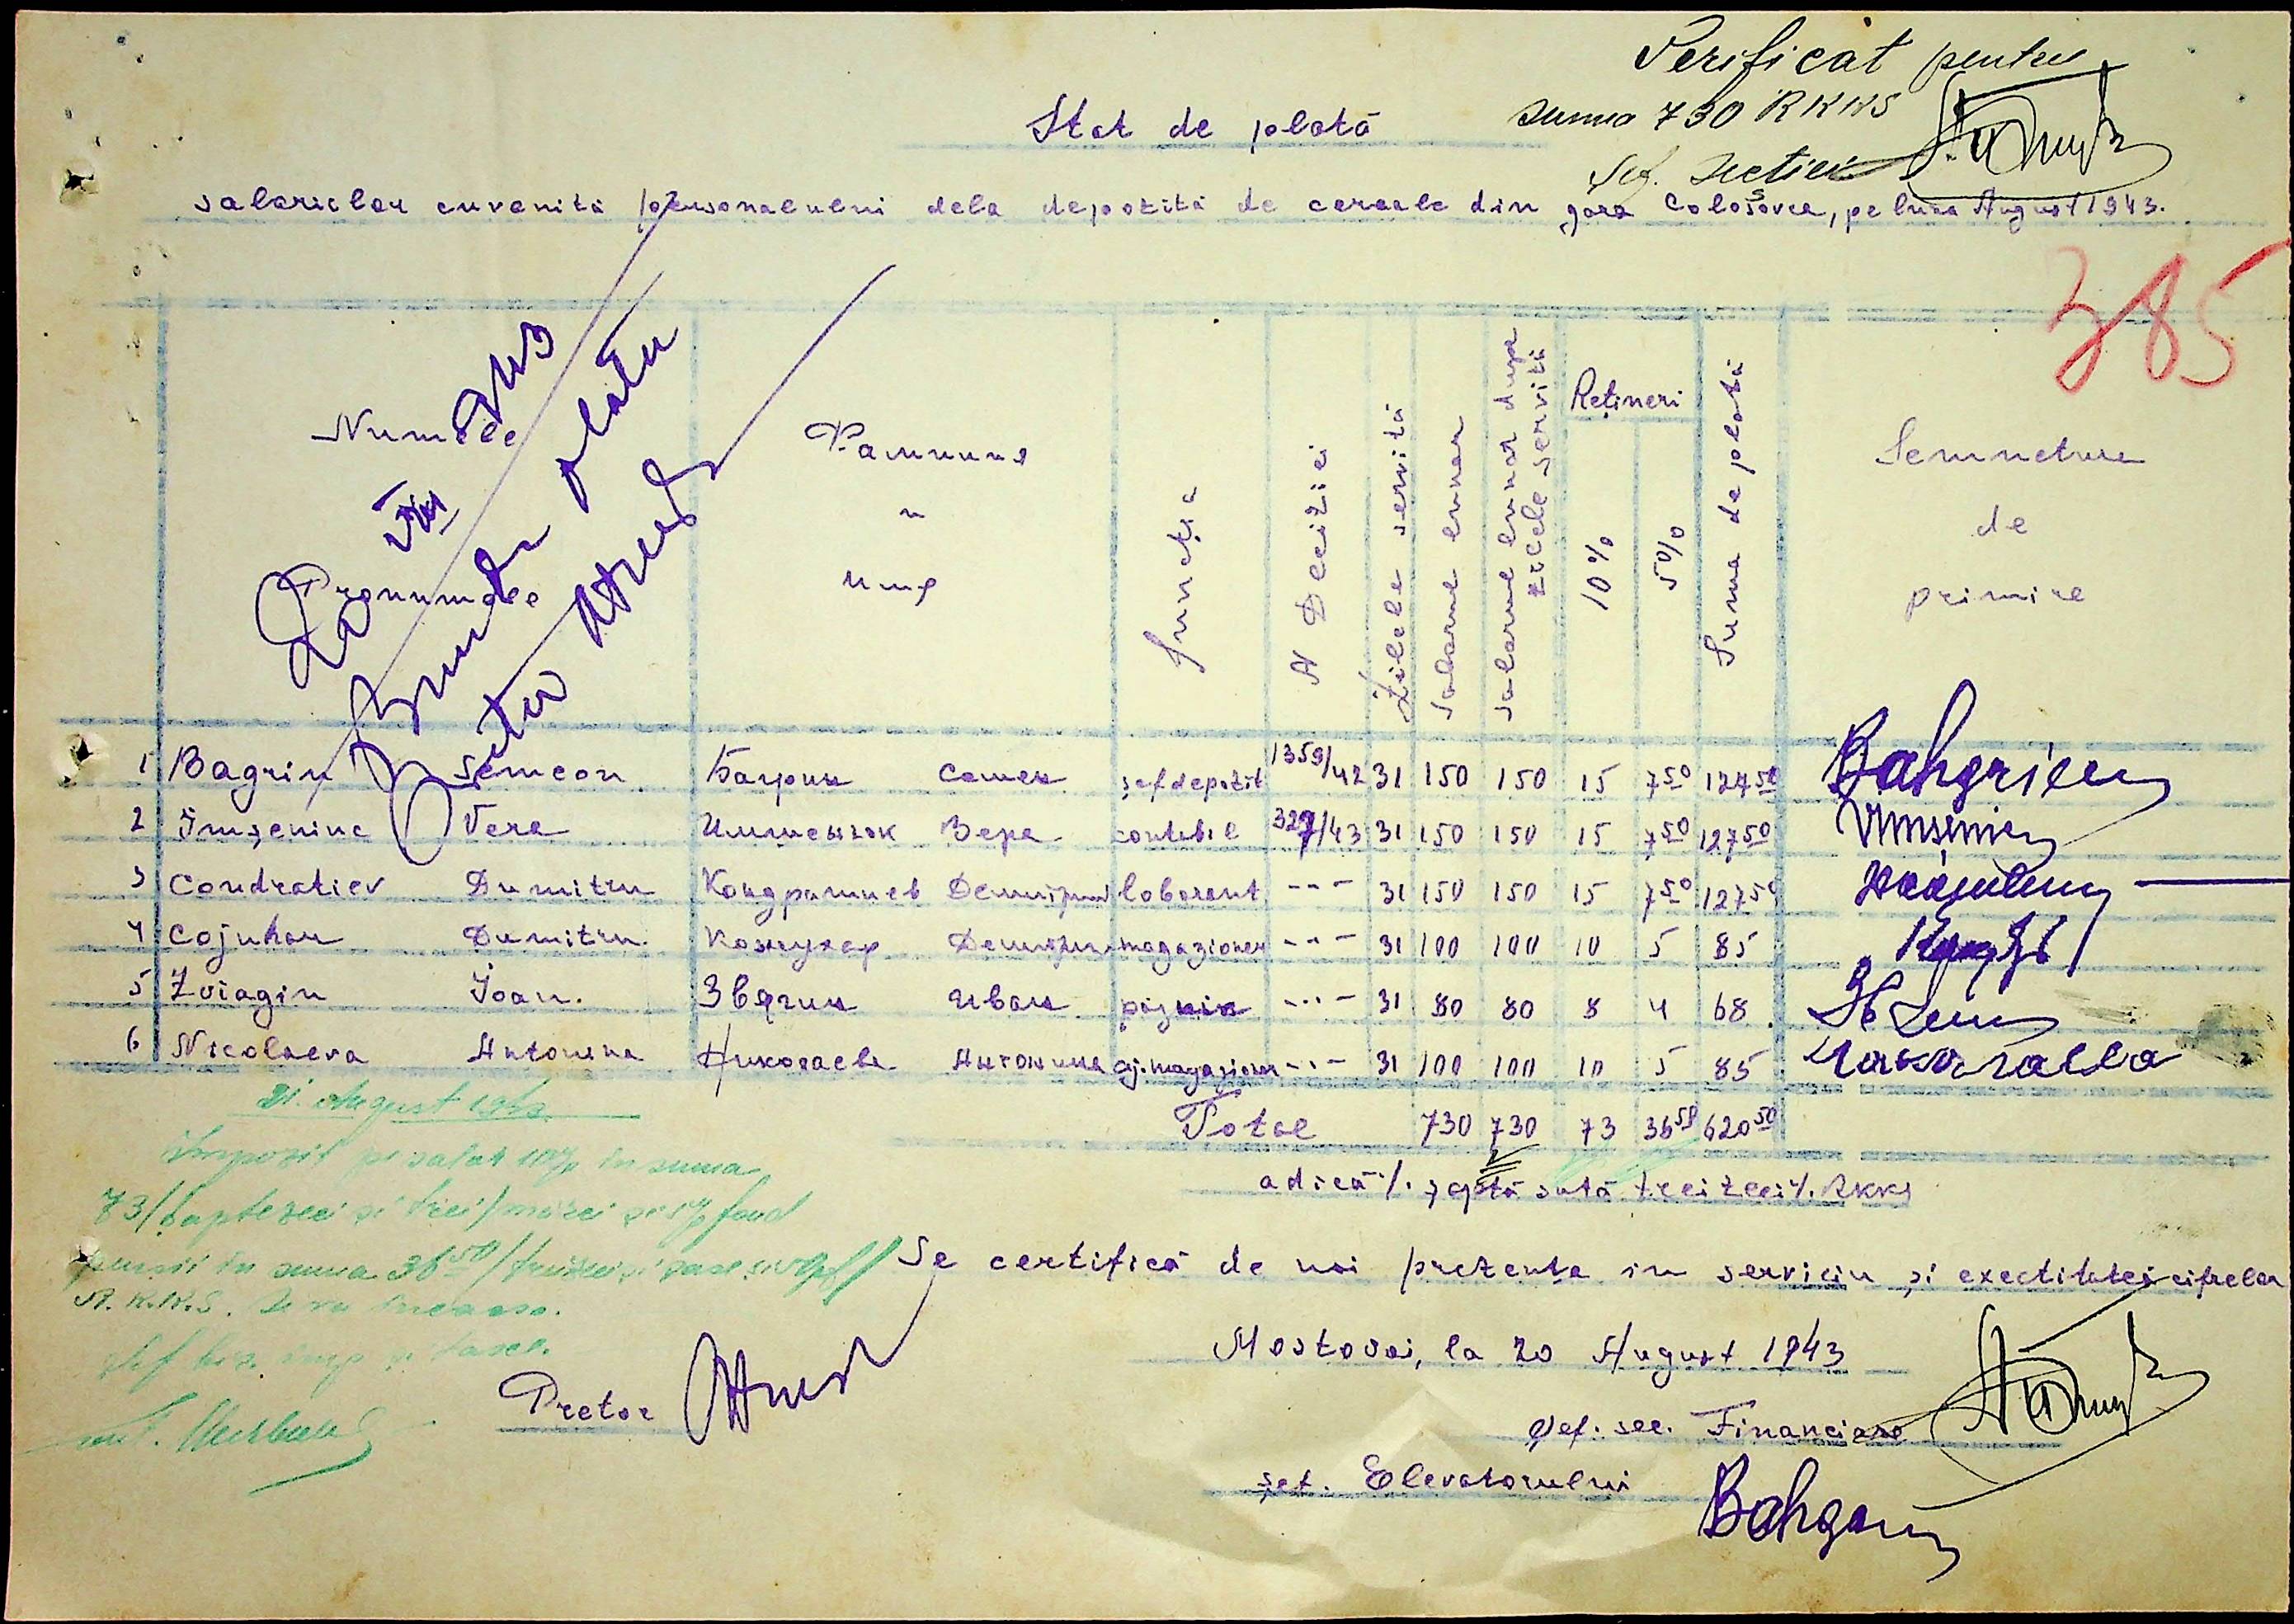 Verificat pentru
suma 730 RKKS
Șef. Secției
Stat de plată
salariilor cuvenită personalului dela depozită de cereale din gara Colosovca, pe luna August 1943.
385
Numele
Pronumele
Фамилия
и
имя
Functia
N Deciziei
Zilele servită
Salarul lunar
Salarul lunar dupe zilele servită
Rețineri
10%
5%
Suma de plată
Semnetura
de
primire
VIII 943
platu
1 Bagrin Semeon Багрин Семен șef depozit 1359/42 31 150 150 15 7 50 127 50
2 Imșeninc Vera Имшеник Вера contabil 327/43 31 150 150 15 7 50 127 50
3 Condratiev Dumitru Кондратиев Демитрий laborant -"- 31 150 150 15 7 50 127 50
4 Cojuhar Dumitru. Кожухар Демитрий magazioner -"- 31 100 100 10 5 85
5 Zviagin Ioan. Звягин Иван paznic -"- 31 80 80 8 4 68
6 Nicolaeva Antonina Николаева Антонина aj. magazioner -"- 31 100 100 10 5 85
Total 730 730 73 36 50 620 50
adică /. șeptă sută treizeci /. RKKS
21. August 1943
Impozit pe salar 10% în suma
73/șaptezeci și trei/mărci și 5% fond
pensii în suma 36 50/treizeci și șase și 50 pf/
R.K.K.S. Se va încasa.
Șef bir. imp și taxe.
Se certifică de noi prezența în serviciu și exectitatea cifrelor
Mostovoi, la 20 August 1943
Pretor
Șef. sec. Financiare
șef. Elevatorului